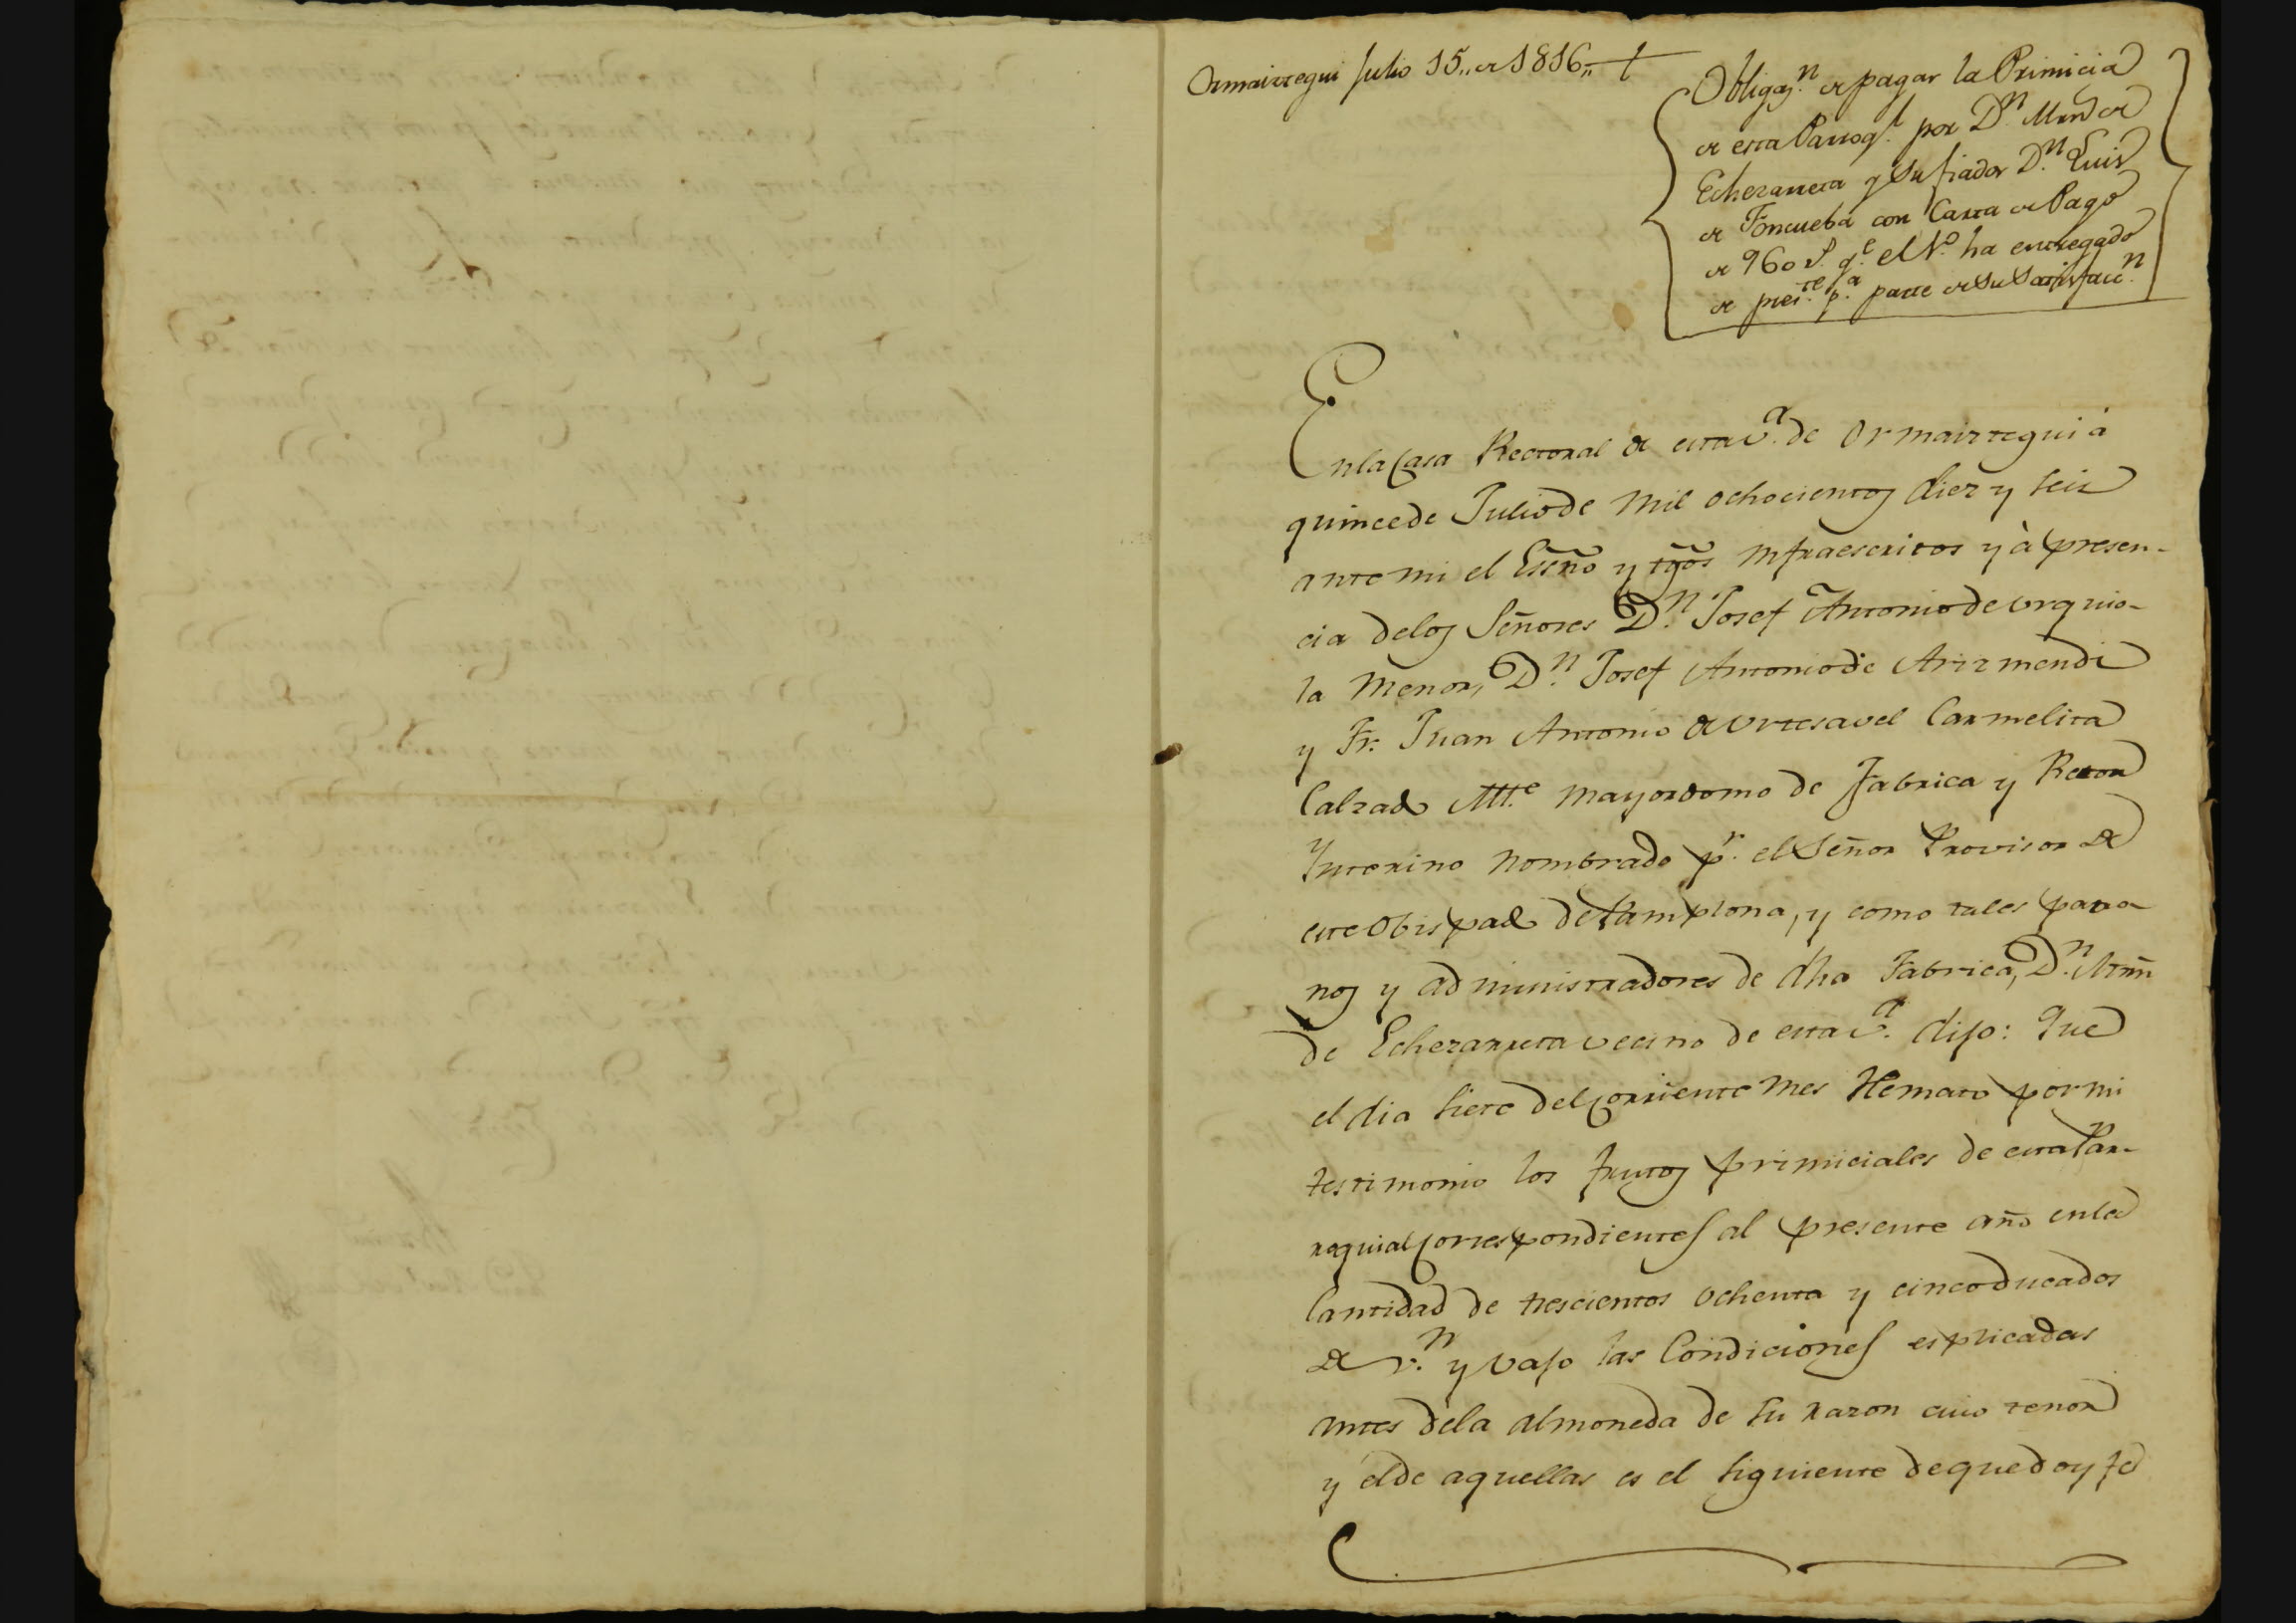 Ormaiztegui Julio 15,, de 1816,, †
Obligaz.n de pagar la Primicia
de esta Parroq.l por D.n Mrn de
Echezarreta y su fiador D.n Luis
de Foncueba con Carta de Pago
de 960 r.s q.e el N.o ha entregado
de pres.te p.a parte de su satisfacc.n
En la Casa Rectoral de esta v.a de Ormaiztegui á
quince de Julio de mil ochocientos diez y seis
ante mi el Esc̃no y tg̃os infraescritos y à presen-
cia de los Señores D.n Josef Antonio de Urquio-
la Menor, D.n Josef Antonio de Arizmendi
y Fr. Juan Antonio de Urtesavel Carmelita
Calzado Mtt.e Mayordomo de Fabrica y Retor
Interino nombrado p.r el Señor Provisor de
este Obispado de Pamplona, y como tales patro-
nos y administradores de dha Fabrica, D.n Mrñ
de Echezarreta vecino de esta v.a dijo: Que
el dia siete del corriente mes Remato por mi
testimonio los frutos primiciales de esta Par-
roquial correspondientes al presente año en la
Cantidad de trescientos ochenta y cinco ducados
de v.n y vajo las Condiciones esplicadas
antes de la almoneda de su razon cuio tenor
y el de aquellas es el siguiente de que doy fe